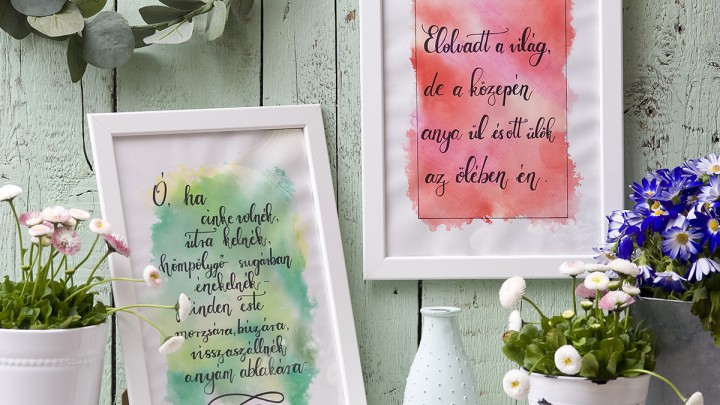 Ó, ha
cinke volnék,
útra kelnék,
hömpölygő sugárban
énekelnék -
minden este
morzsára, búzára,
visszaszállnék
anyám ablakára
Elolvadt a világ,
de a közepén
anya ül és ott ülök
az ölében én.